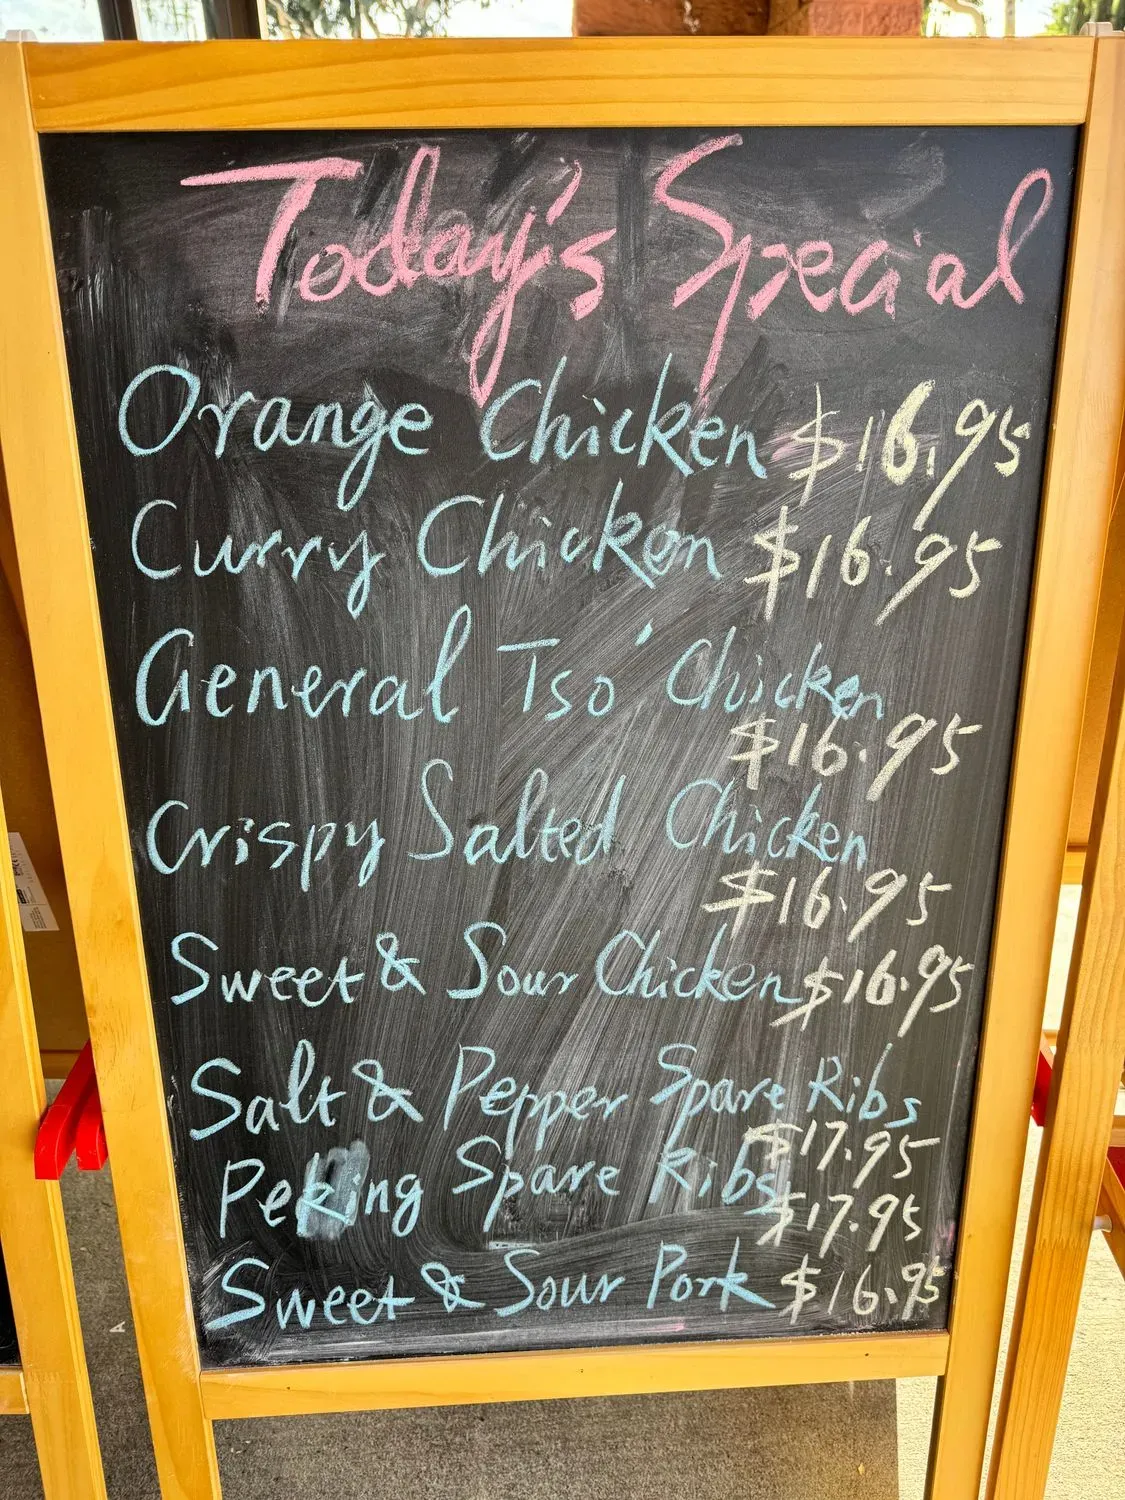 Today's Special
Orange Chicken $16.95
Curry Chicken $16.95
General Tso' Chicken
$16.95
Crispy Salted Chicken
$16.95
Sweet & Sour Chicken $16.95
Salt & Pepper Spare Ribs
$17.95
Peking Spare Ribs $17.95
Sweet & Sour Pork $16.95